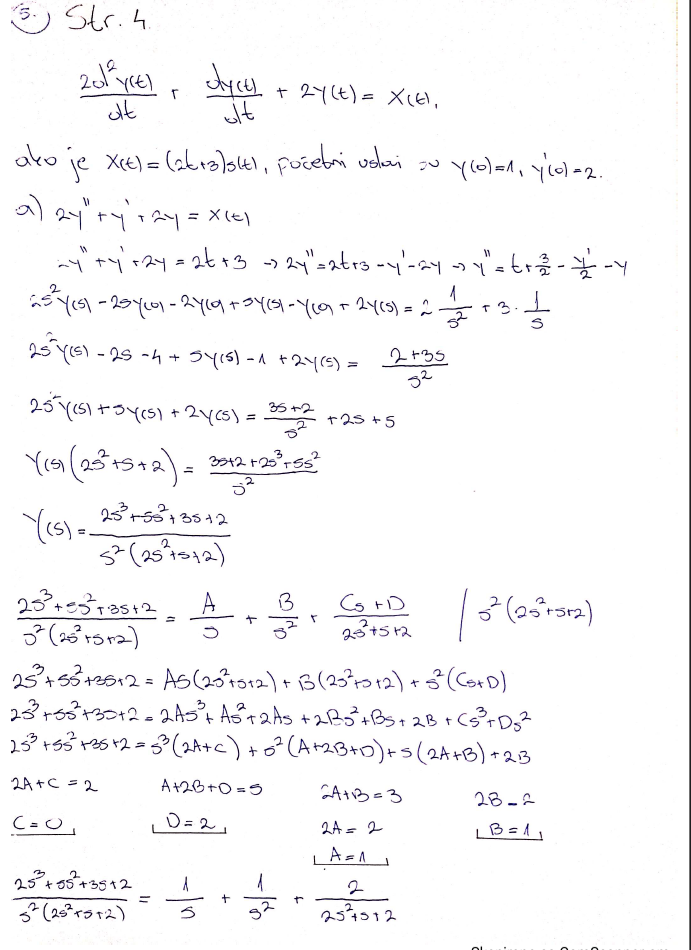 5. Str. 4.
2d²y(t)/dt + dy(t)/dt + 2y(t) = x(t),
ako je x(t) = (2t+3)s(t), početni uslovi su y(0)=1, y'(0)=2.
a) 2y'' + y' + 2y = x(t)
2y'' + y' + 2y = 2t+3 → 2y'' = 2t+3 - y' - 2y → y'' = t + 3/2 - y'/2 - y
2s²Y(s) - 2sy(0) - 2y'(0) + sY(s) - y(0) + 2Y(s) = 2 1/s² + 3 · 1/s
2s²Y(s) - 2s - 4 + sY(s) - 1 + 2Y(s) = 2+3s/s²
2s²Y(s) + sY(s) + 2Y(s) = 3s+2/s² + 2s + 5
Y(s)(2s²+s+2) = 3s+2+2s³+5s²/s²
Y(s) = 2s³+5s²+3s+2/s²(2s²+s+2)
2s³+5s²+3s+2/s²(2s²+s+2) = A/s + B/s² + Cs+D/2s²+s+2 / s²(2s²+s+2)
2s³+5s²+3s+2 = As(2s²+s+2) + B(2s²+s+2) + s²(Cs+D)
2s³+5s²+3s+2 = 2As³+As²+2As+2Bs²+Bs+2B+Cs³+Ds²
2s³+5s²+3s+2 = s³(2A+C) + s²(A+2B+D) + s(2A+B) + 2B
2A+C = 2 A+2B+D = 5 2A+B = 3 2B = 2
C = 0 D = 2 2A = 2 B = 1
A = 1
2s³+5s²+3s+2/s²(2s²+s+2) = 1/s + 1/s² + 2/2s²+s+2